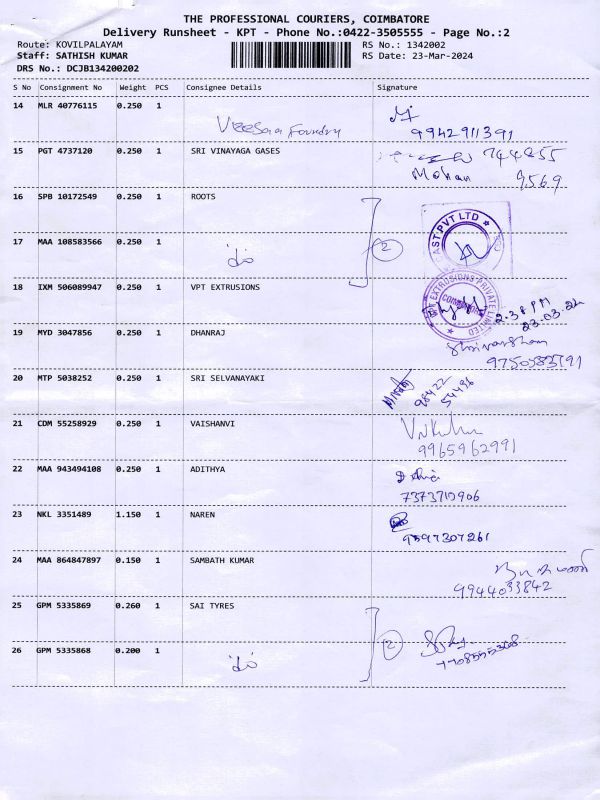 THE PROFESSIONAL COURIERS, COIMBATORE
Delivery Runsheet - KPT - Phone No.:0422-3505555 - Page No.:2
Route: KOVILPALAYAM RS No.: 1342002
Staff: SATHISH KUMAR RS Date: 23-Mar-2024
DRS No.: DCJB134200202
S No Consignment No Weight PCS Consignee Details Signature
14 MLR 40776115 0.250 1
Veesaa Foundry
9942911391
15 PGT 4737120 0.250 1 SRI VINAYAGA GASES 744855
Mohan 9569
16 SPB 10172549 0.250 1 ROOTS
CAST PVT LTD
17 MAA 108583566 0.250 1
do 2
18 IXM 506089947 0.250 1 VPT EXTRUSIONS
EXTRUSIONS PRIVATE LIMITED
2-38 PM
23.03.24
19 MYD 3047856 0.250 1 DHANRAJ
9750583791
20 MTP 5038252 0.250 1 SRI SELVANAYAKI
98422
54496
21 CDM 55258929 0.250 1 VAISHANVI
9965962991
22 MAA 943494108 0.250 1 ADITHYA
7373710906
23 NKL 3351489 1.150 1 NAREN
9597307261
24 MAA 864847897 0.150 1 SAMBATH KUMAR
9944033842
25 GPM 5335869 0.260 1 SAI TYRES
26 GPM 5335868 0.200 1
do 2
7708555308